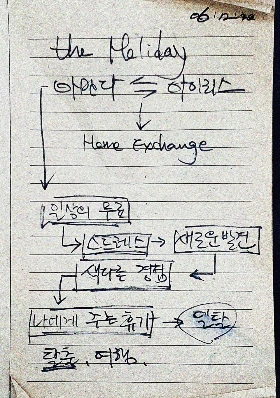 the Holiday
아만다 ⇆ 아이리스
Home Exchange
일상의 무료
스트레스 → 새로운발견
색다른 경험
나에게 주는 휴가 → 일탈
탈출, 여행.